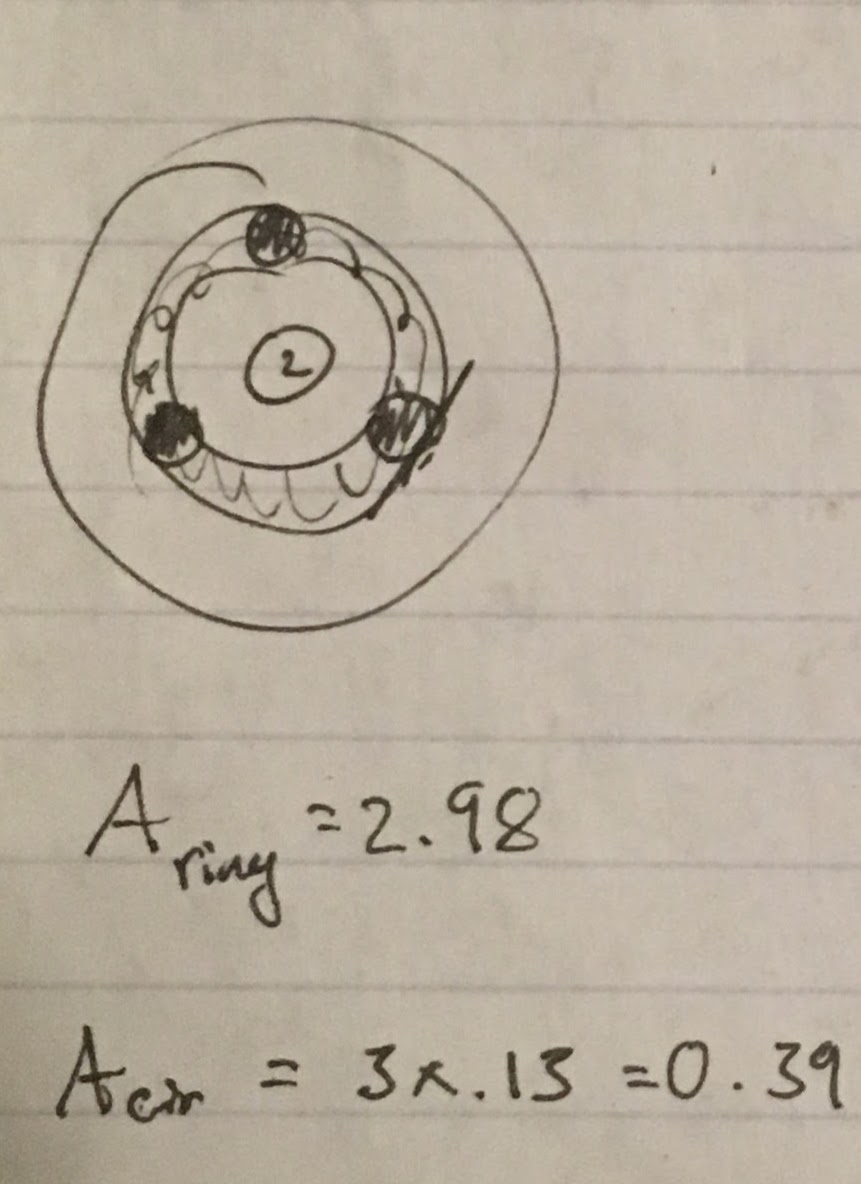 2
A ring = 2.98
A cir = 3 x .13 = 0.39